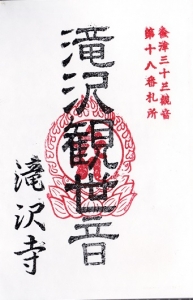 会津三十三観音
第十八番札所
滝沢観世音
滝沢寺